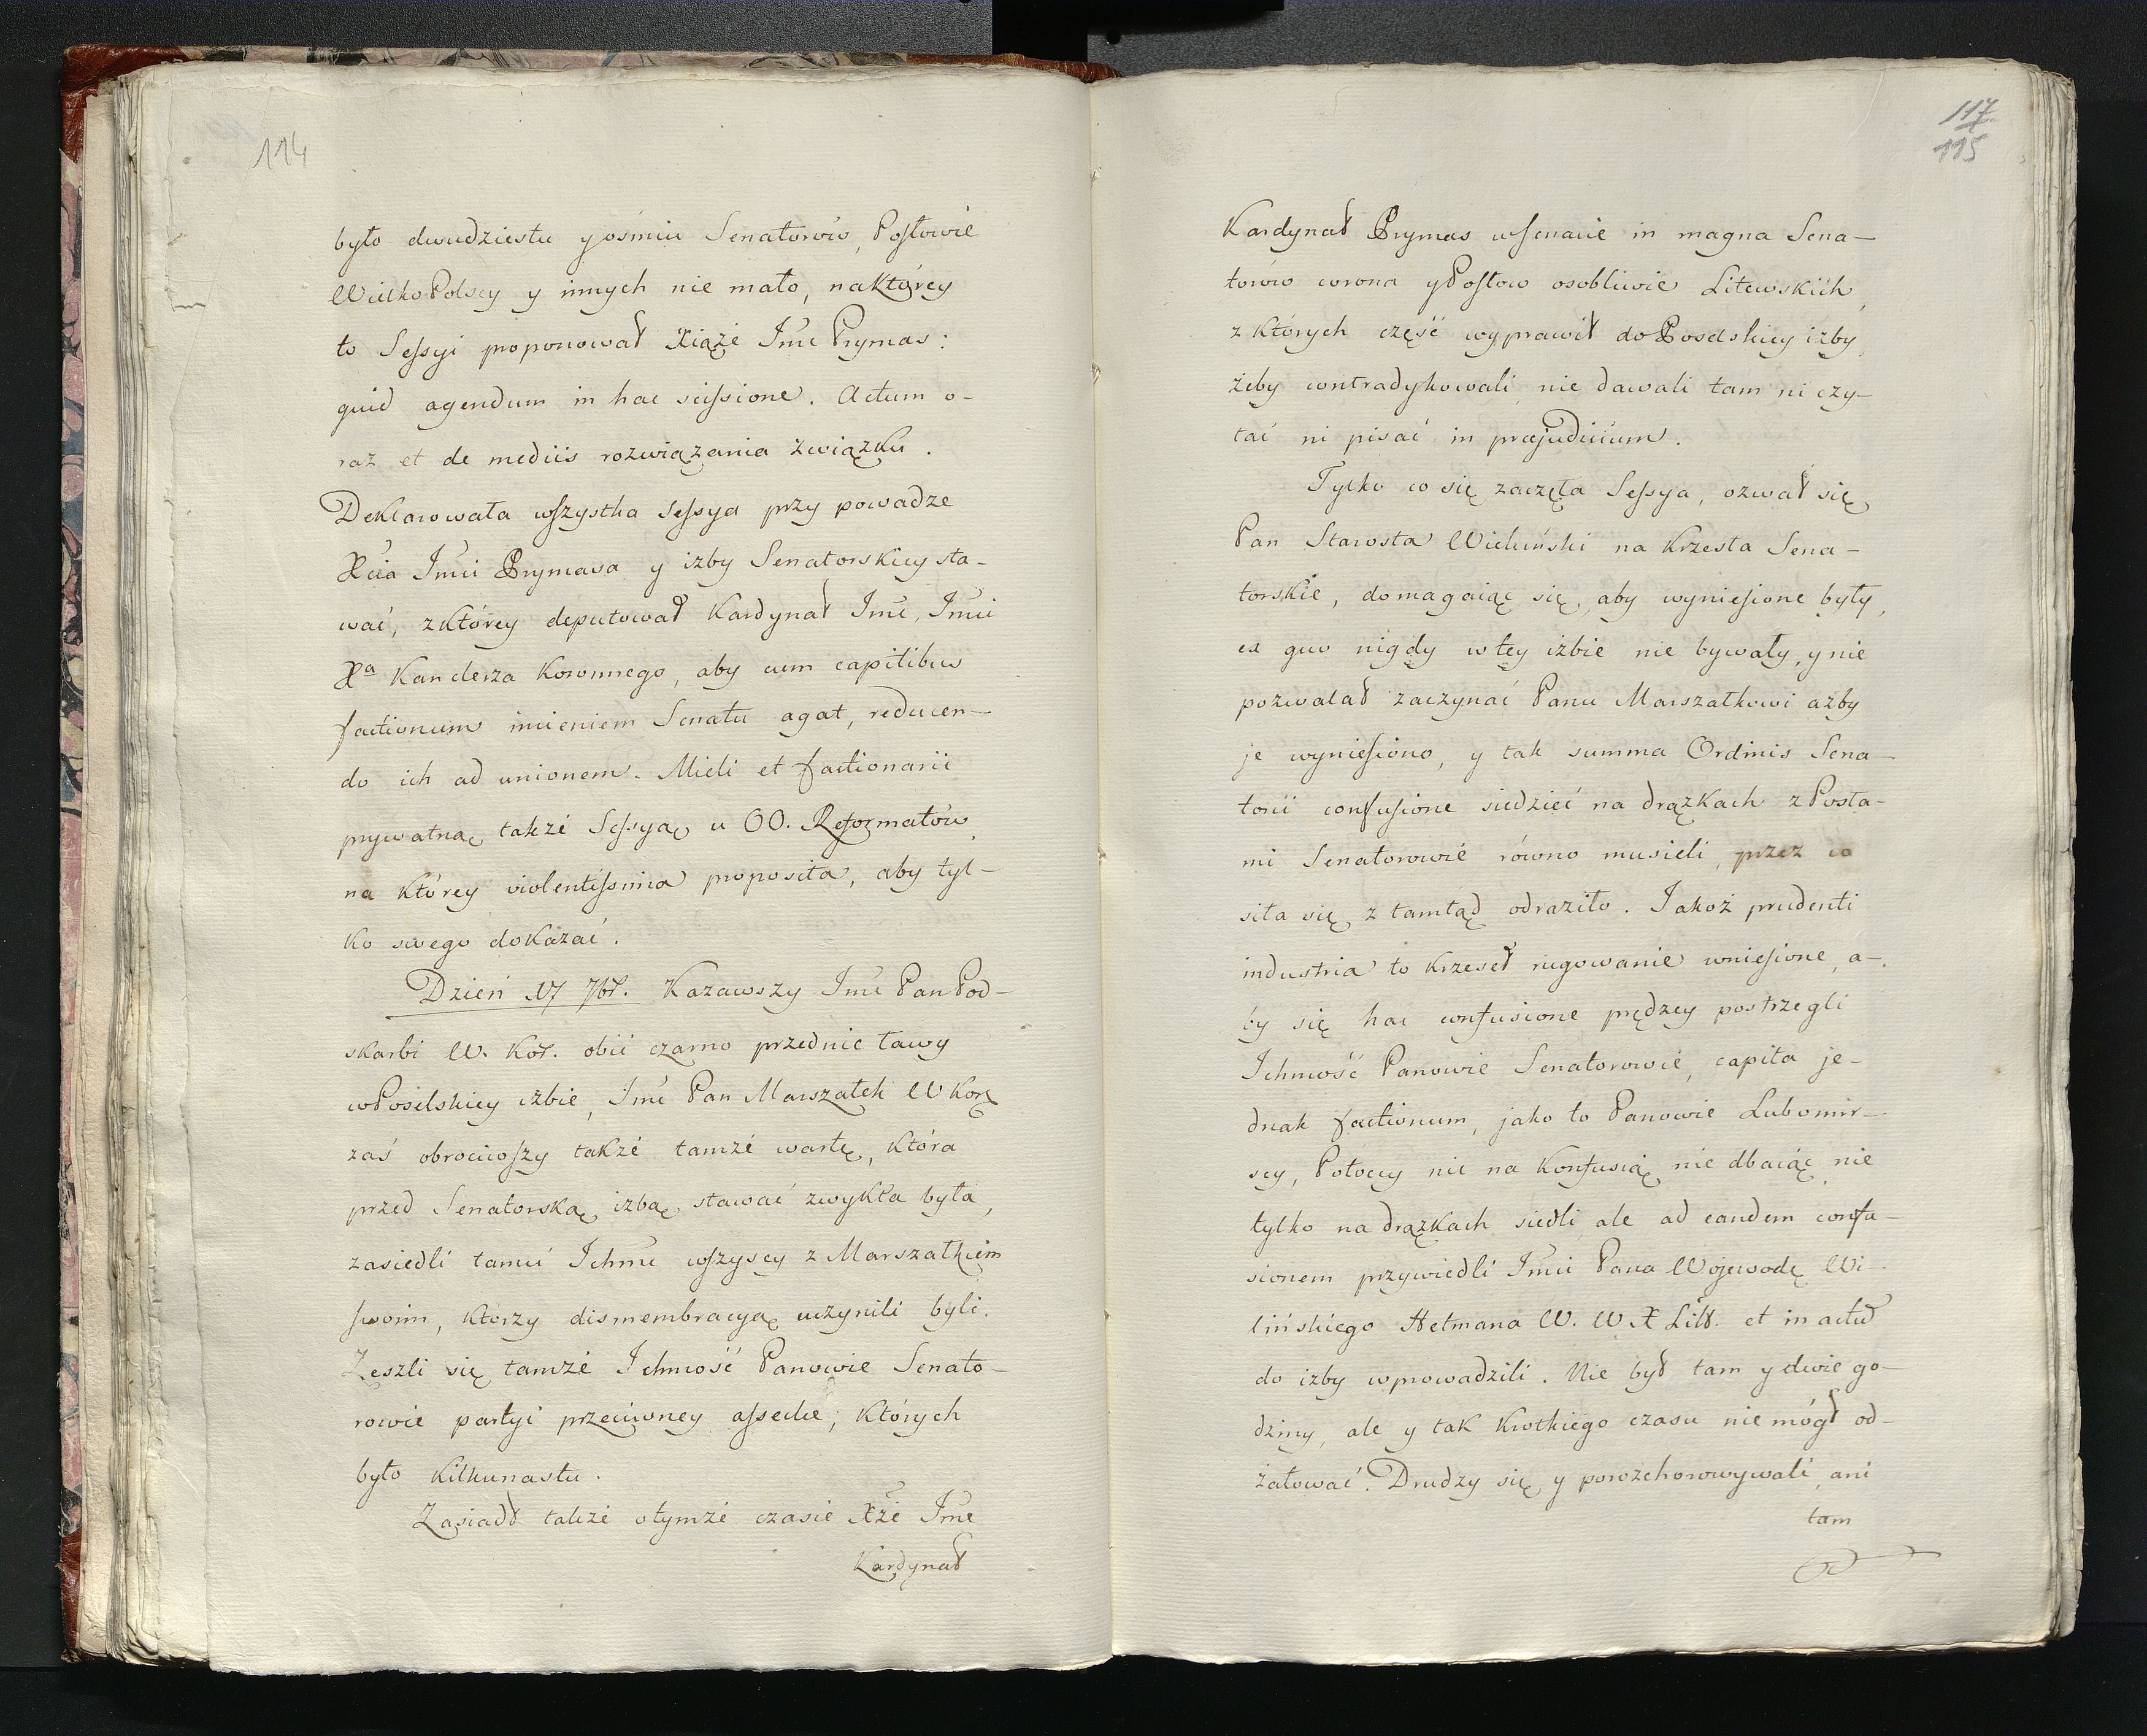 114
było dwudziestu y ośmiu Senatorów, Posłowie
WielkoPolscy y innych nie mało, na którey
to Sessyi proponował Xiąże Jmć Prymas:
quid agendum in hac scissione. Actum o-
raz et de mediis rozwiązania związku.
Deklarowała wszystka sessya przy powadze
Xcia Jmci Prymasa y izby Senatorskiey sta-
wać, z którey deputował Kardynał Jmć, Jmci
Xa Kanclerza Koronnego, aby cum capitibus
factionum imieniem Senatu agat, reducen-
do ich ad unionem. Mieli et factionarii
prywatną także Sessyą u OO. Reformatów
na którey violentissima proposita, aby tyl-
ko swego dokazać.
Dzień 17 7br. Kazawszy Jmć Pan Pod-
skarbi W. Kor. obić czarno przednie ławy
w Poselskiey izbie, Jmć Pan Marszałek W Kor
zaś obrociwszy także tamże wartę, która
przed Senatorską izbą stawać zwykła była,
zasiedli tamci Ichmć wszyscy z Marszałkiem
swoim, ktorzy dismembracyą uczynili byli.
Zeszli się tamże Ichmość Panowie Senato-
rowie partyi przeciwney assecle, których
było kilkunastu.
Zasiadł także o tymże czasie Xże Jmć
Kardynał
117
115
Kardynał Prymas w senacie in magna Sena-
torów corona y Posłow osobliwie Litewskich,
z których część wyprawił do Poselskiey izby,
żeby contradykowali, nie dawali tam ni czy-
tać ni pisać in præjudicium.
Tylko co się zaczęła Sessya, ozwał się
Pan Starosta Wieluński na krzesła Sena-
torskie, domagaiąc się, aby wyniesione były,
ex quo nigdy w tey izbie nie bywały, y nie
pozwalał zaczynać Panu Marszałkowi ażby
je wyniesiono, y tak summa Ordinis Sena-
torii confusione siedzieć na drązkach z Posła-
mi Senatorowie równo musieli, przez co
siła się z tamtąd odraziło. Jakoż prudenti
industria to krzeseł rugowanie wniesione, a-
by się hac confusione prędzey postrzegli
Ichmość Panowie Senatorowie, capita je-
dnak factionum, jako to Panowie Lubomir-
scy, Potoccy nic na konfusią nie dbaiąc, nie
tylko na drązkach siedli, ale ad eandem confu-
sionem przywiedli Jmci Pana Wojewodę Wi-
lińskiego Hetmana W. W X Litt. et in actu
do izby wprowadzili. Nie był tam y dwie go-
dziny, ale y tak krotkiego czasu nie mógł od-
żałować. Drudzy się y porozchorowywali, ani
tam